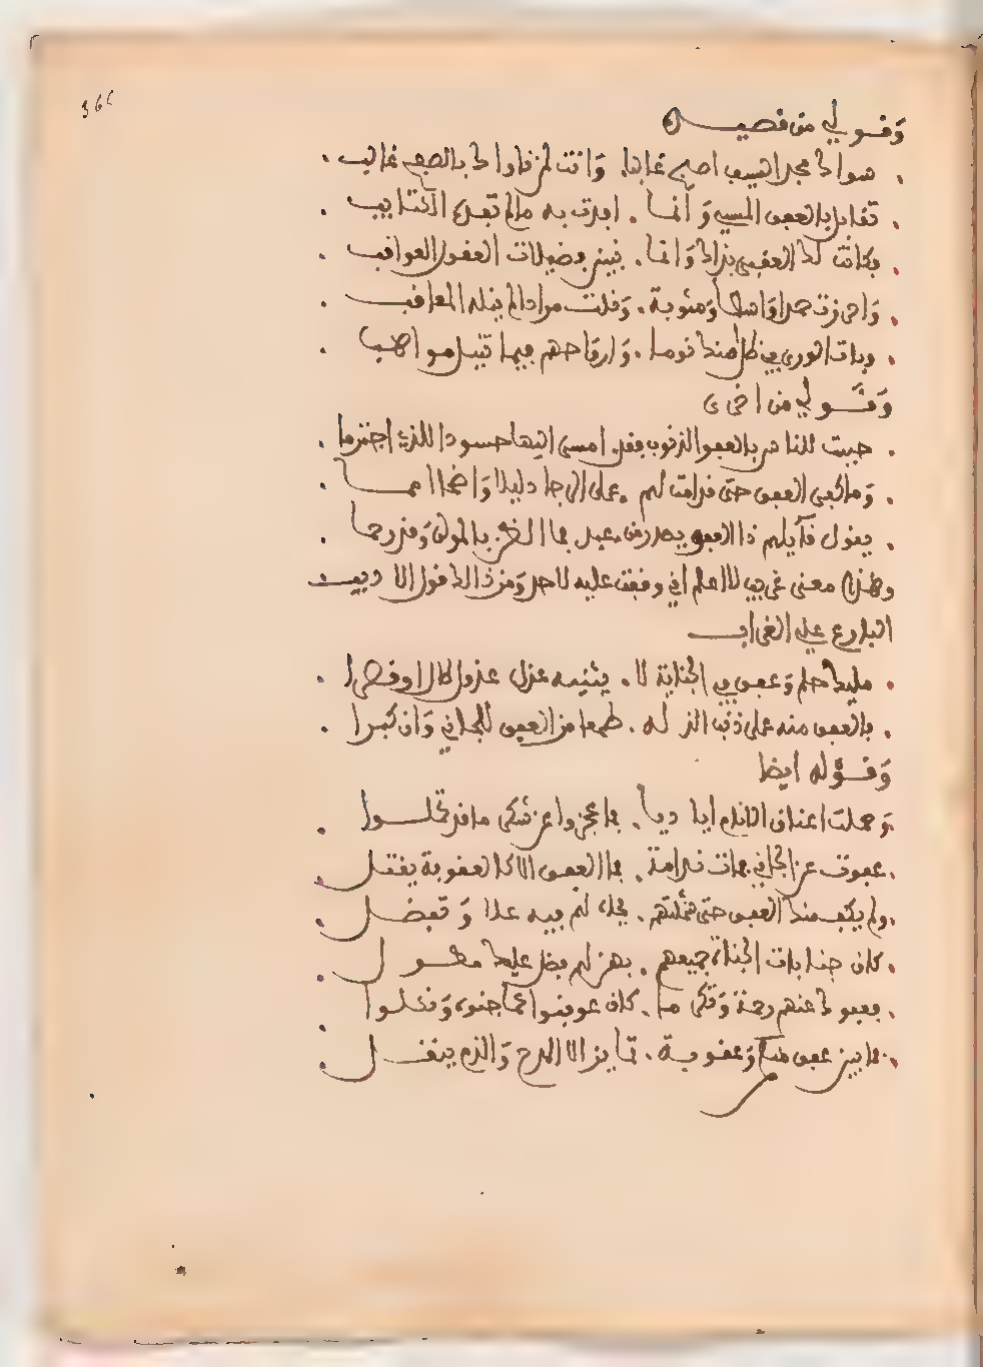 366
وقولي من قصيدة
سواك بحد السيف اصبح غالبا . وانت لمن ناواك بالصفح غالب
تقابل بالعفو المسيء وانما . ابدت به ما لم تبده الكتائب
فكانت لك العقبى بذاك وانما . تبين بفضيلات العقول العواقب
واحرزت حمدا واسما ومثوبة . وقلت مرادا لم ينله المعاقب
وبات الورى في ظل منك نوما . وارواحهم فيما تنيل مواهب
وقولي من اخرى
حببت للناس بالعفو الذنوب فقد . امسى اليها حسودا للذي اجترما
وما كفى العفو حتى قدامت لهم . على الرجا دليلا واضحا امما
يقول قايلهم ذا العفو يصدر من . عبد فما الظن بالمولى وقد رحما
وهذا معنى غريب لا اعلم اني وقفت عليه لاحد ومن ذلك قول الاديب
البارع علي الغراب
مليك حلم وعفو في الجناية لا . يثنيه عذل عذول طال او قصرا
بالعفو منه على ذنب الذ له . طمعا من العفو للجاني وان كبرا
وقوله ايضا
وحملت اعناق الانام اياديا . فما عجزوا عن شكر ما قد تحملوا
عفوت عن الجاني فمات ندامة . فما العفو الا كالعقوبة يقتل
ولم يكف منك العفو حتى شملتهم . بجاه لهم فيه علا وتفضل
كان جنايات الجناة جميعهم . بهن لهم فضل عليك مطول
بعفوك عنهم رحمة وتكرما . كان عوقبوا عما جنوه ونكلوا
فما بين عفو منك وعقوبة . تمايز الا المدح والذم ينقل